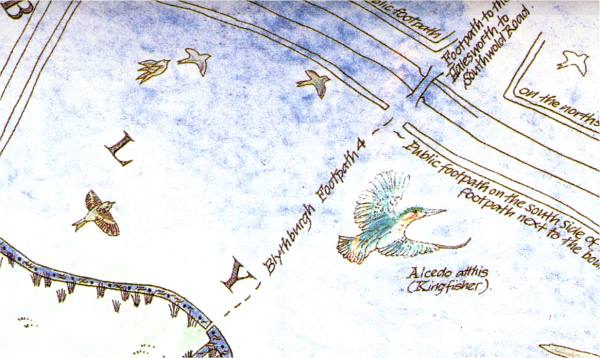 B
L
Y
Public footpath
Footpath to the
Halesworth to
Southwold Road.
on the north s
Blythburgh Footpath 4
Public footpath on the south side of
footpath next to the bou
Alcedo atthis
(Kingfisher).